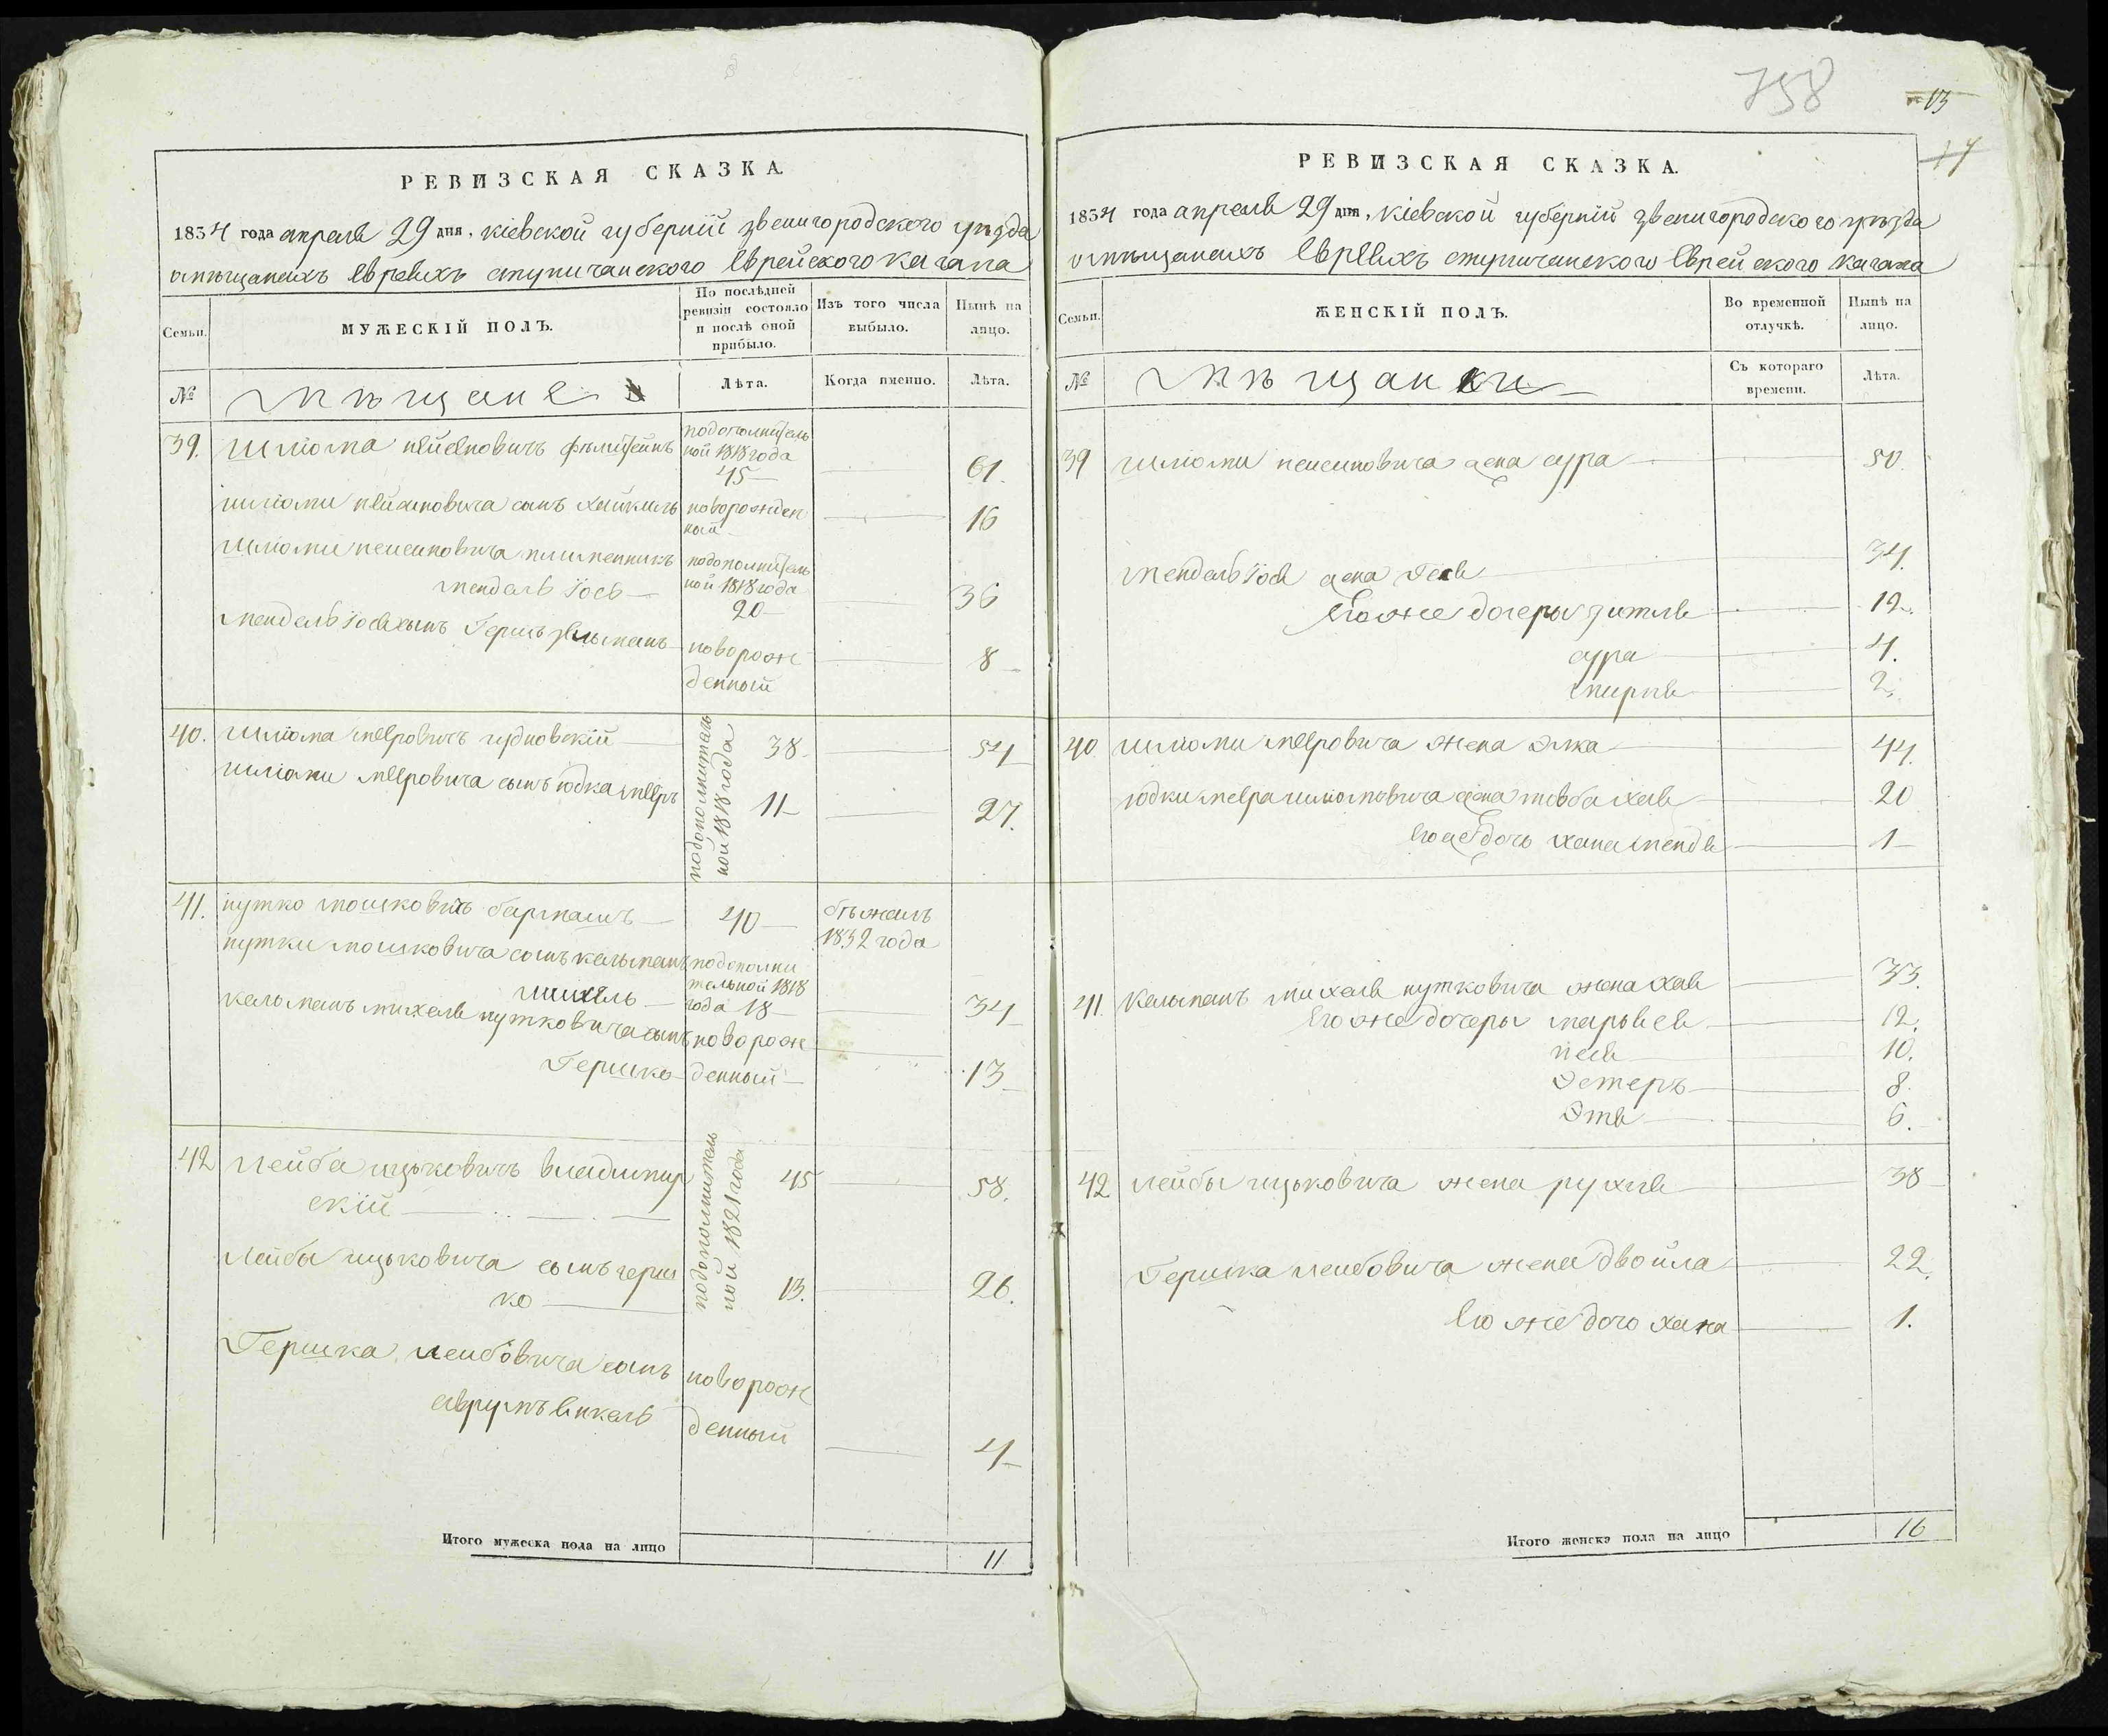 758
13
17
РЕВИЗСКАЯ СКАЗКА.
1834 года апреля 29 дня, кіевской губерніи звенигородского уѣзда
о мѣщанахъ евреяхъ ступичанского Еврейского кагала
Семьи.
МУЖЕСКІЙ ПОЛЪ.
По послѣдней ревизіи состояло и послѣ оной прибыло.
Изъ того числа выбыло.
Нынѣ на лицо.
№
мѣщане
Лѣта.
Когда именно.
Лѣта.
39. Шліома нейсповичъ
подополнитель
ной 1818 года
45
61.
шліоми сынъ хаикиль
новорожден
ный
16
шліоми племенникъ
мендель Іосъ
подополнитель
ной 1818 года
20
36
мендель Іося сынъ Гершъ залманъ
новорож
денный
8
40. шліома мееровичъ чудновскій
38
54
шліоми мееровича сынъ юдка мееръ
11
27.
подополнитель
ной 1818 года
41. нутко мошковичъ
40
бѣжалъ
1832 года
нутки мошковича сынъ кальманъ
михель
подополни
тельной 1818
года 18
34
кальманъ михеля нутковича сынъ
Гершко
новорож
денный
13
42 лейба ицьковичъ владимир
скій
45
58.
лейбы ицьковича сынъ герш
ко
13.
26.
подополнитель
ной 1821 года
Гершка лейбовича сынъ
аврумъ
новорож
денный
4
Итого мужеска пола на лицо
11
РЕВИЗСКАЯ СКАЗКА.
1834 года апреля 29 дня, кіевской губерніи звенигородского уѣзда
о мѣщанахъ евреяхъ ступичанского Еврейского кагала
Семьи.
ЖЕНСКІЙ ПОЛЪ.
Во временной отлучкѣ.
Нынѣ на лицо.
№
мѣщанки
Съ котораго времени.
Лѣта.
39 шліоми жена сура
50.
мендель Іося жена
34.
Его же дочеры зитля
12.
сура
4.
2.
40. шліоми мееровича жена Элка
44.
юдки меера шліомовича жена товба хая
20
Его же дочь хана менде
1
41. кальманъ михеля нутковича жена хая
33.
Его же дочеры марьяся
12.
песя
10.
Эстеръ
8.
Этя
6.
42 лейбы ицьковича жена рухля
38
Гершка лейбовича жена двойла
22.
Его же дочь хана
1.
Итого женска пола на лицо
16